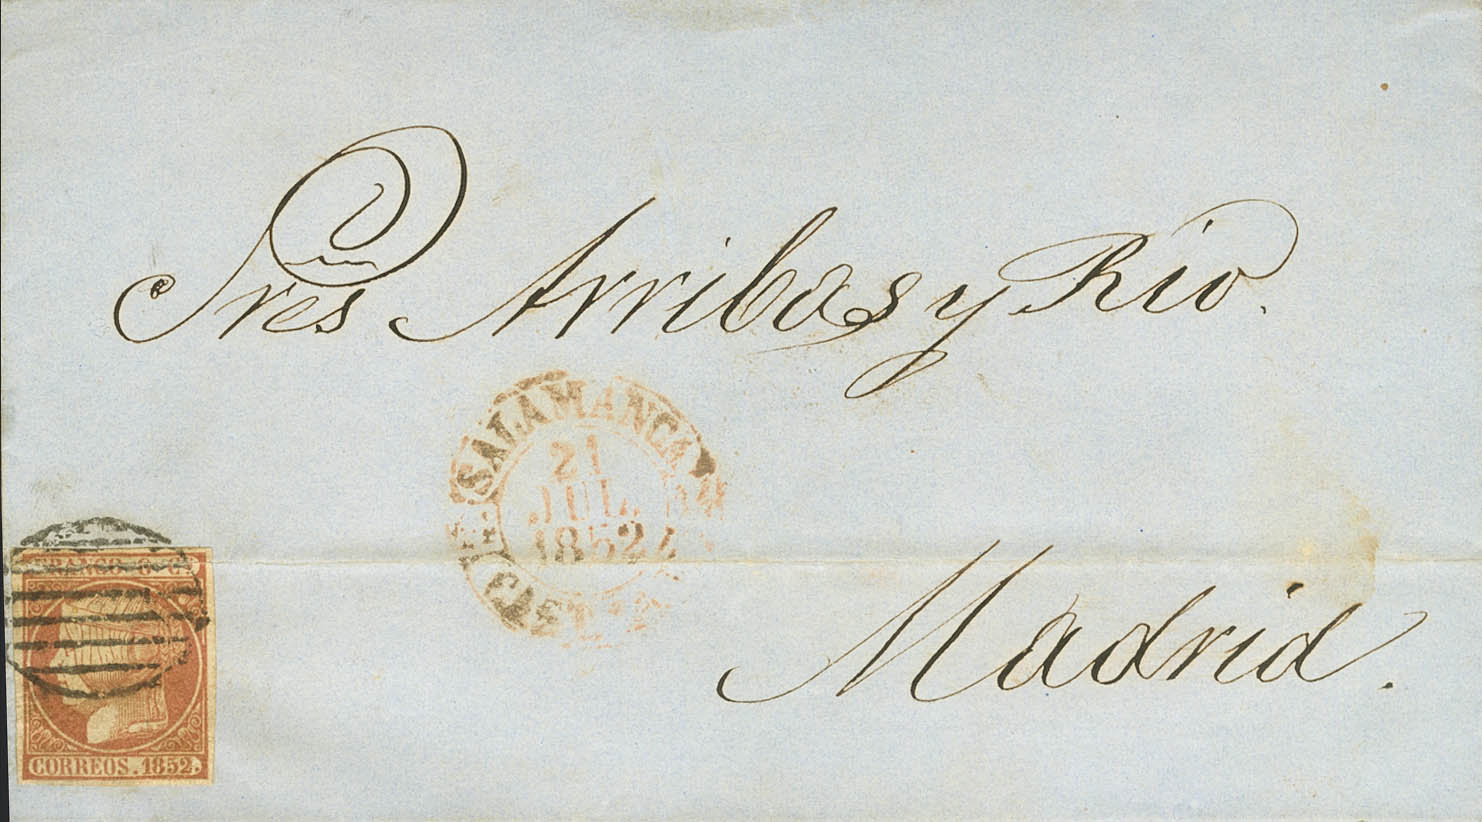 Sres Arribas y Rio.
SALAMANCA
21
JUL.
1852
Madrid.
FRANCO. 6. Cs
CORREOS. 1852.